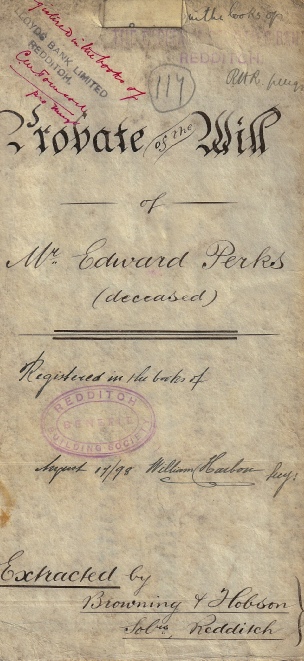 in the books of
Registered in the books of
LLOYDS BANK LIMITED
REDDITCH
REDDITCH
117
Probate of the Will
of
Mr. Edward Perks
(deceased)
Registered in the books of
REDDITCH
BENEFIT
BUILDING SOCIETY
August 17/98 William Harbon Secy.
Extracted by
Browning & Hobson
Solrs, Redditch